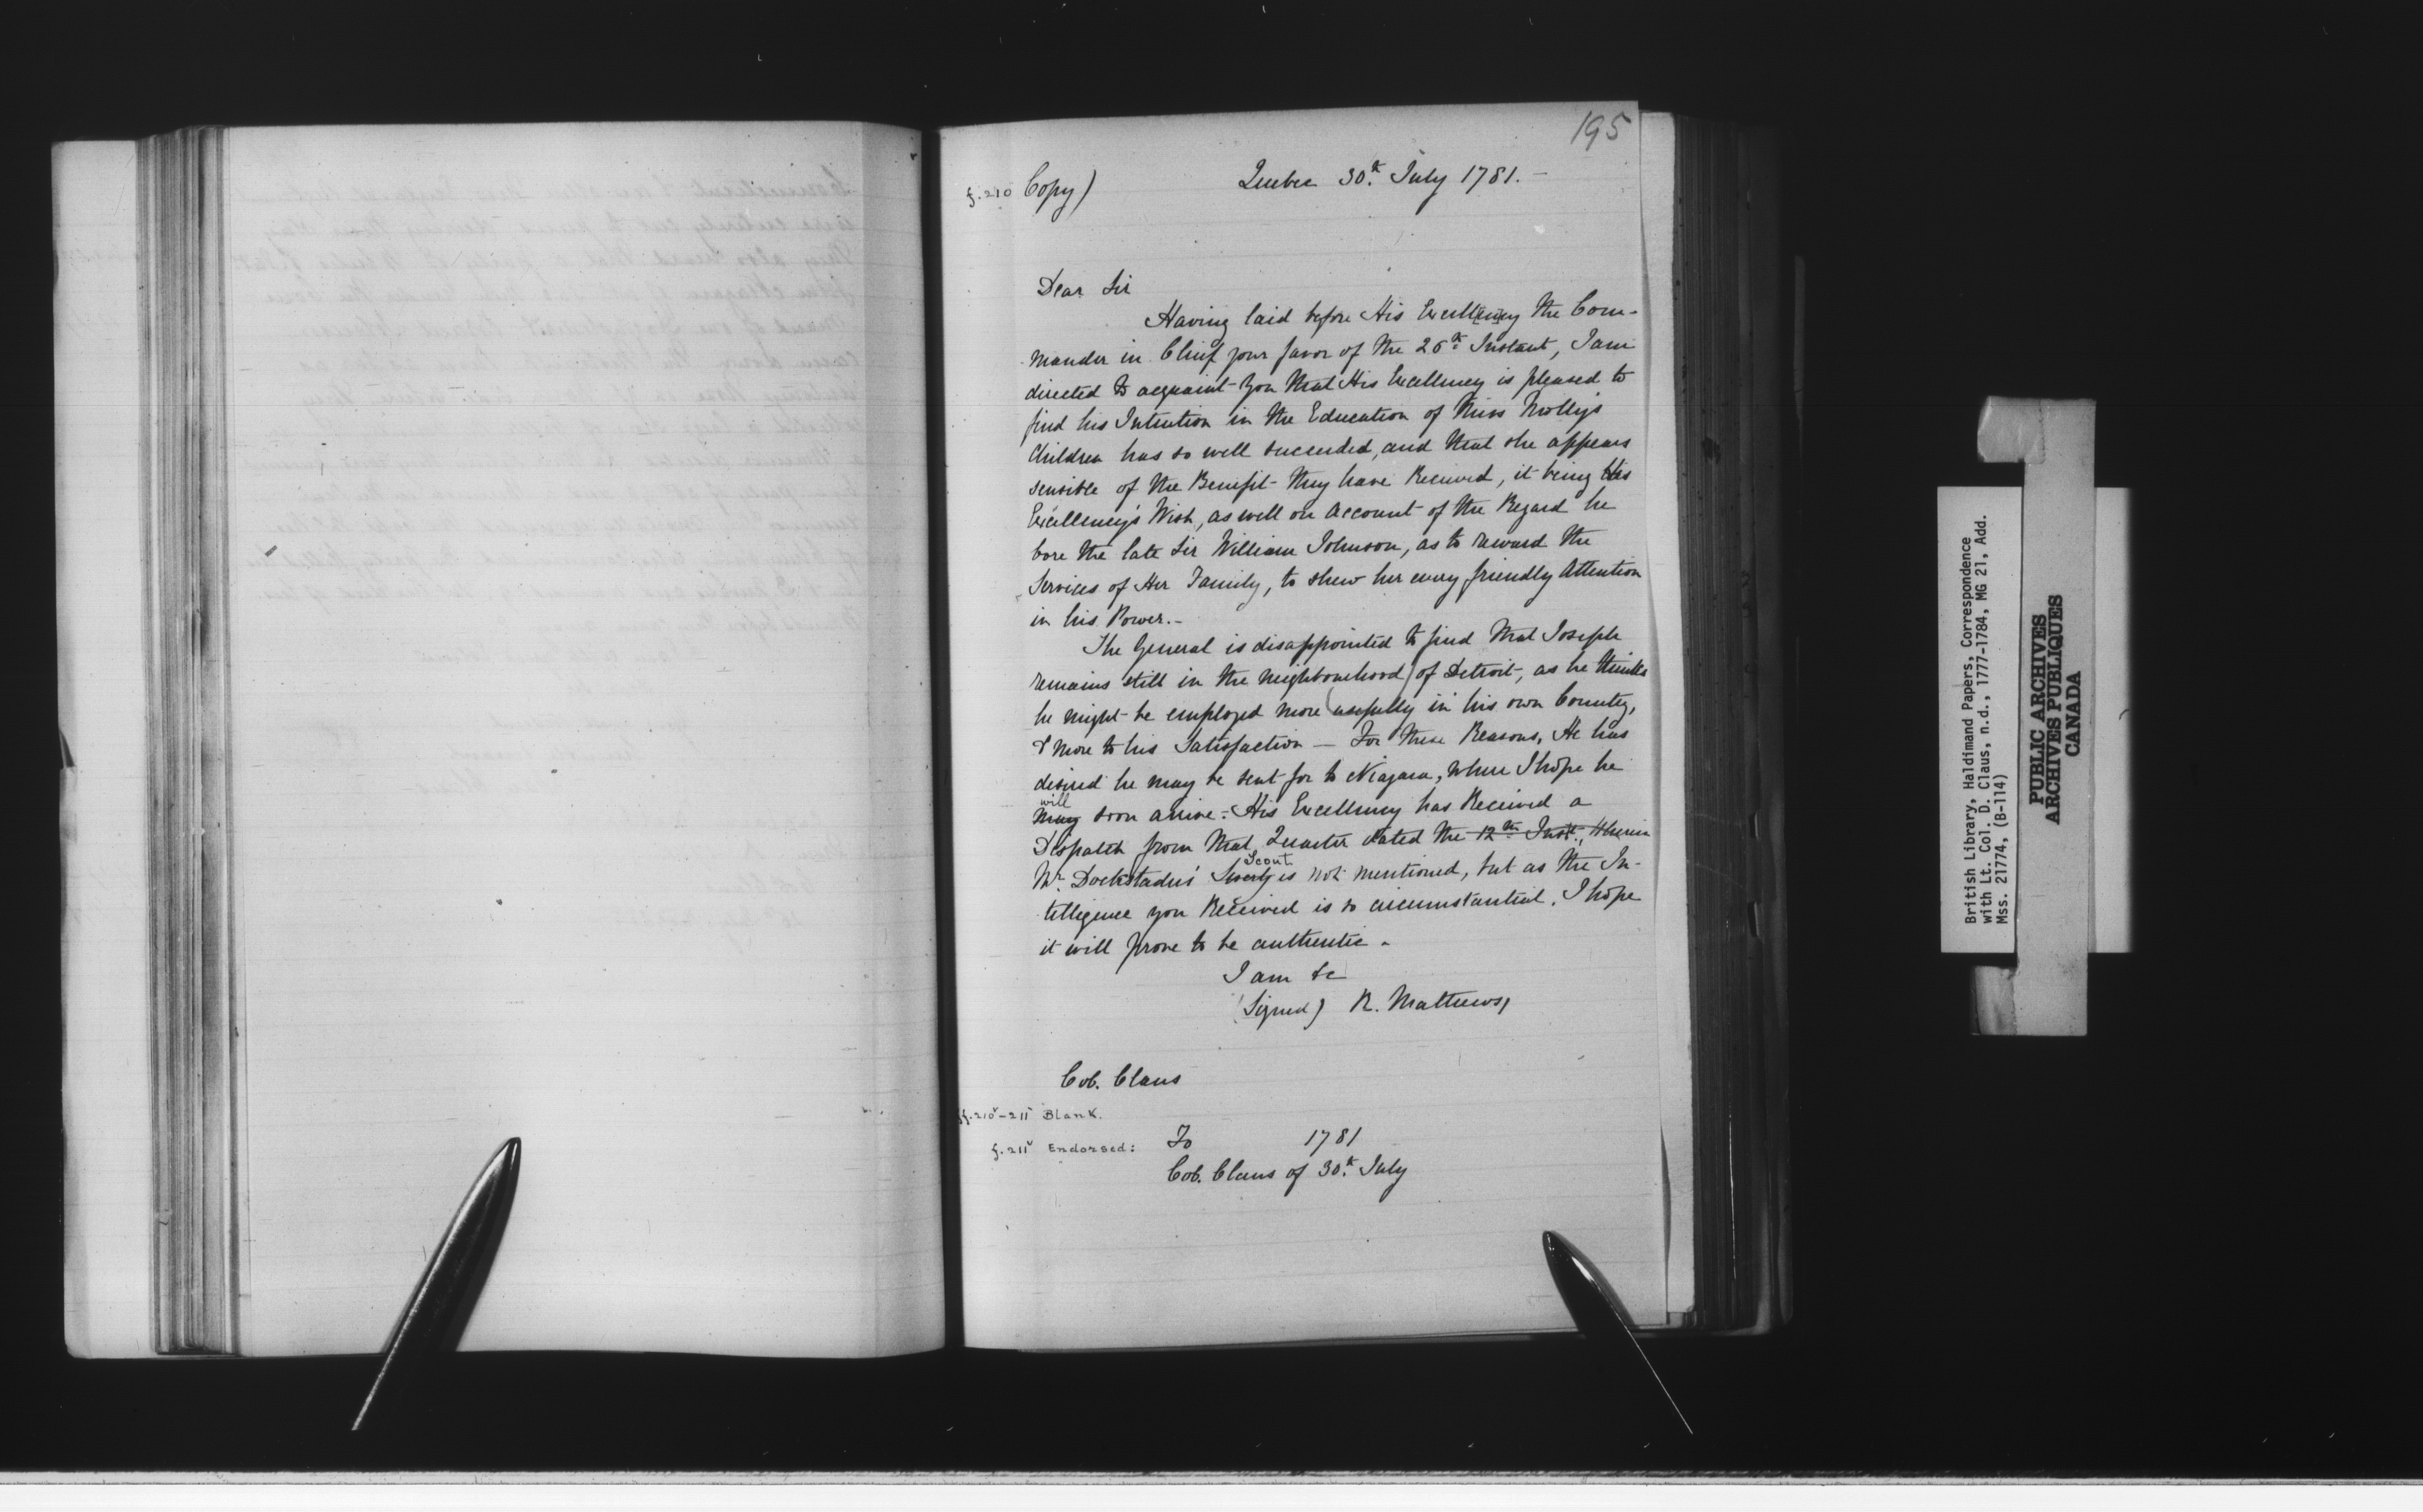 195
f.210 Copy) Quebec 30th July 1781.-
Dear Sir
Having laid before His Excellency the Com-
mander in Chief your favor of the 26th Instant, I am
directed to acquaint You that His Excellency is pleased to
find his Intention in the Education of Miss Molly's
Children has so well succeeded, and that she appears
sensible of the Benefit they have Received, it being His
Excellency's Wish, as well on Account of the Regard he
bore the late Sir William Johnson, as to reward the
Services of Her Family, to shew her every friendly Attention
in his Power.-
The General is disappointed to find that Joseph
remains still in the neighbourhood of Detroit, as he thinks
he might be employed more usefully in his own Country,
& more to his Satisfaction — For these Reasons, He has
desired he may be sent for to Niagara, where I hope he
will
may soon arrive: His Excellency has Received a
Dispatch from that Quarter dated the 12th Inst., Wherein
Scout
Mr Dockstader's is not mentioned, but as the In-
telligence you Received is so circumstantial, I hope
it will prove to be authentic -
I am &c
(Signed) R. Mathews,
Col. Claus
ff.210v-211 Blank.
f.211v Endorsed: To 1781
Col. Claus of 30th July
British Library, Haldimand Papers, Correspondence
with Lt. Col. D. Claus, n.d., 1777-1784, MG 21, Add.
Mss. 21774, (B-114)
PUBLIC ARCHIVES
ARCHIVES PUBLIQUES
CANADA